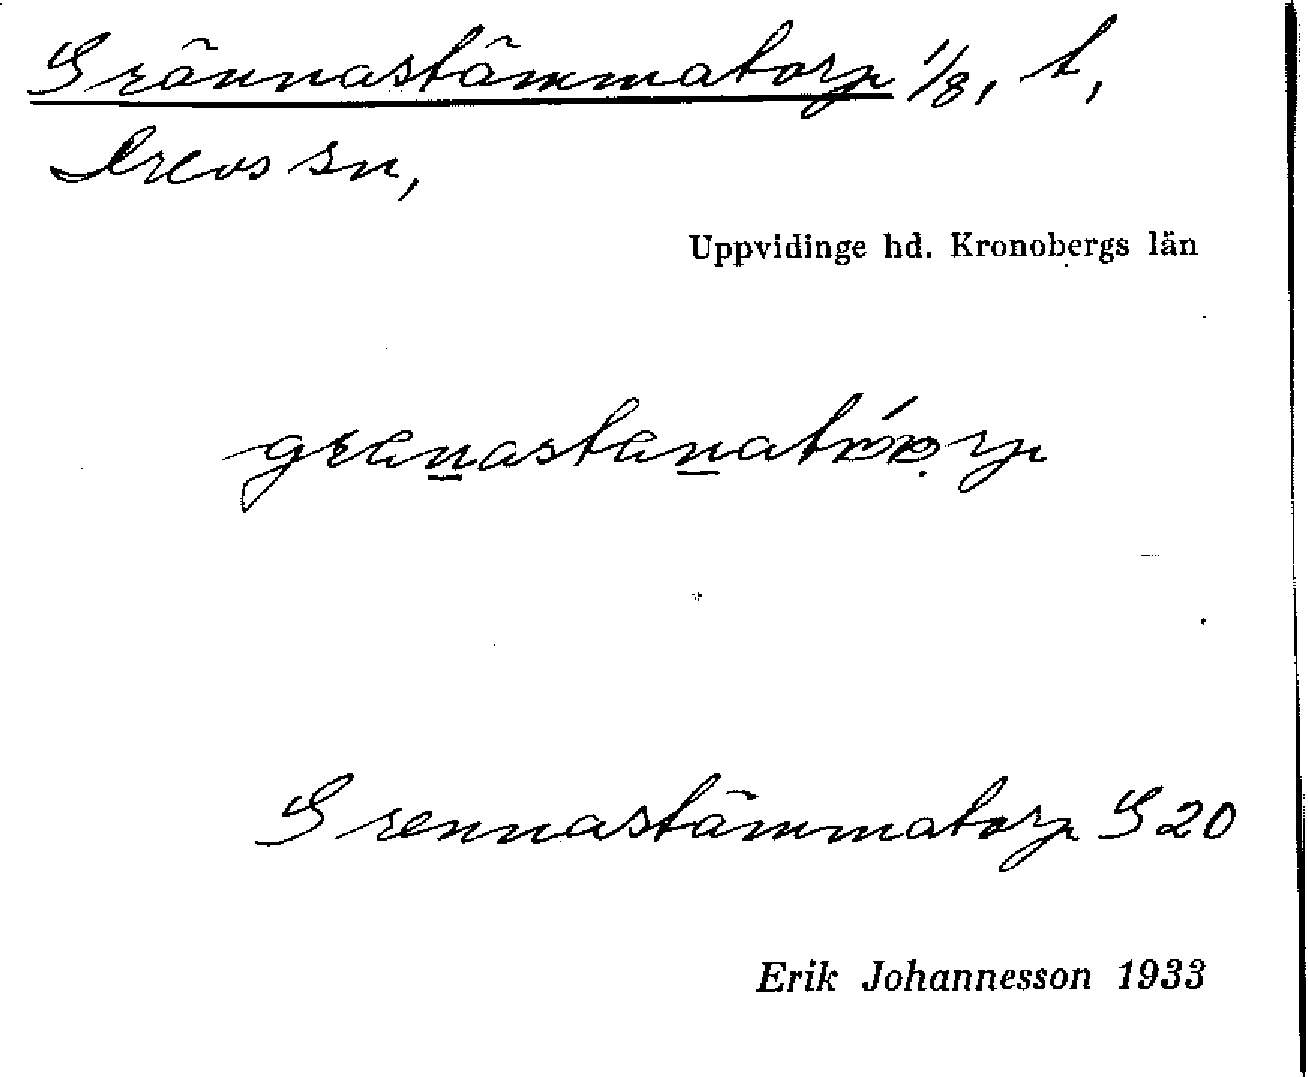 Grännastämmatorp 1/8, t,
Drevs sn,
Uppvidinge hd. Kronobergs län
Grennastämmatorp G20
Erik Johannesson 1933